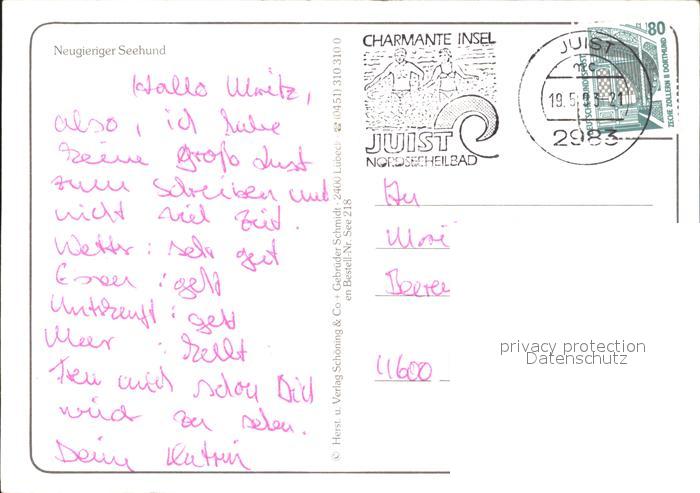 Neugieriger Seehund
Hallo Moritz,
also, ich habe
keine groß Lust
zum schreiben und
nicht viel Zeit.
Wetter : sehr gut
Essen : geht
Unterkunft : geht
Meer : kalt
Freu mich schon Dich
wieder zu sehen.
Deine Katrin
© Herst. u. Verlag Schöning & Co + Gebrüder Schmidt · 2400 Lübeck · ☎ (0451) 310 310 0
en Bestell-Nr. See 218
CHARMANTE INSEL
JUIST
NORDSEEHEILBAD
JUIST
19.5. 21
2983
80
DEUTSCHE BUNDESPOST
ZECHE ZOLLERN II DORTMUND
An
Mori
1600
privacy protection
Datenschutz